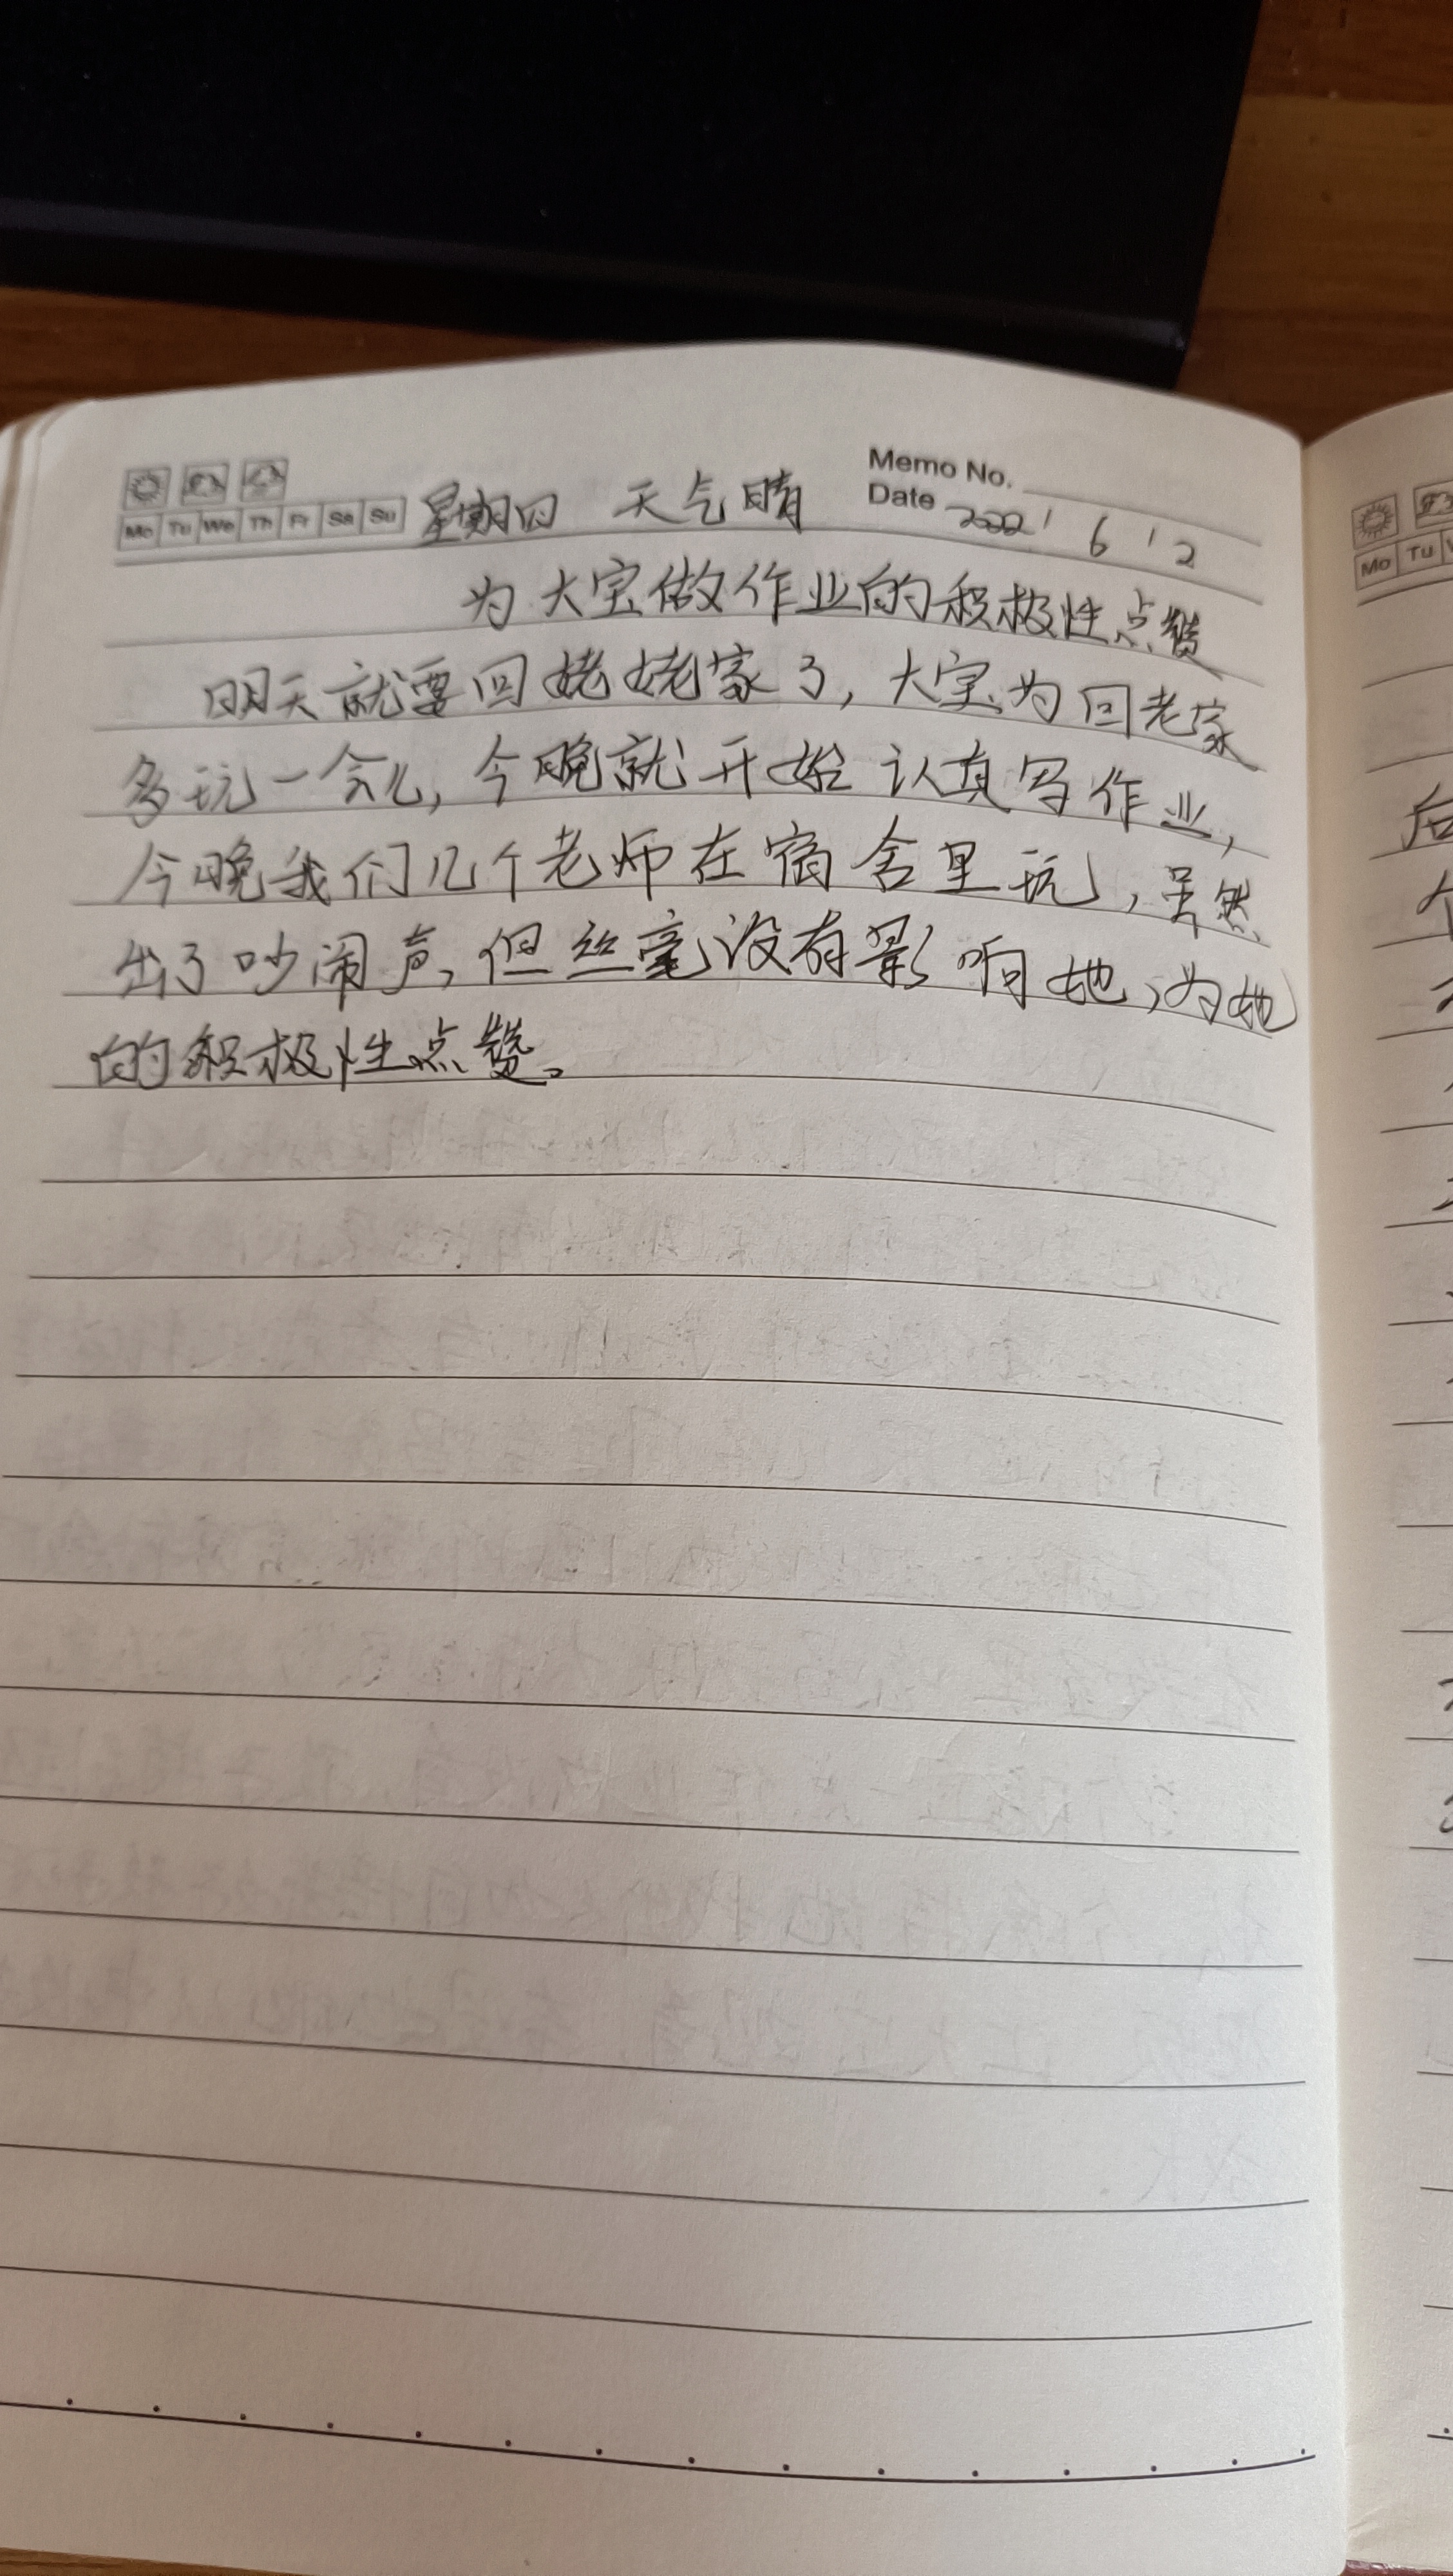 Memo No.
Mo Tu We Th Fr Sa Su 星期四 天气晴 Date 2022 6 2
为大宝做作业的积极性点赞
明天就要回姥姥家了，大宝为回老家
多玩一会儿，今晚就开始认真写作业，
今晚我们几个老师在宿舍里玩，虽然
出了吵闹声，但丝毫没有影响她，为她
的积极性点赞。
Mo Tu
后
个